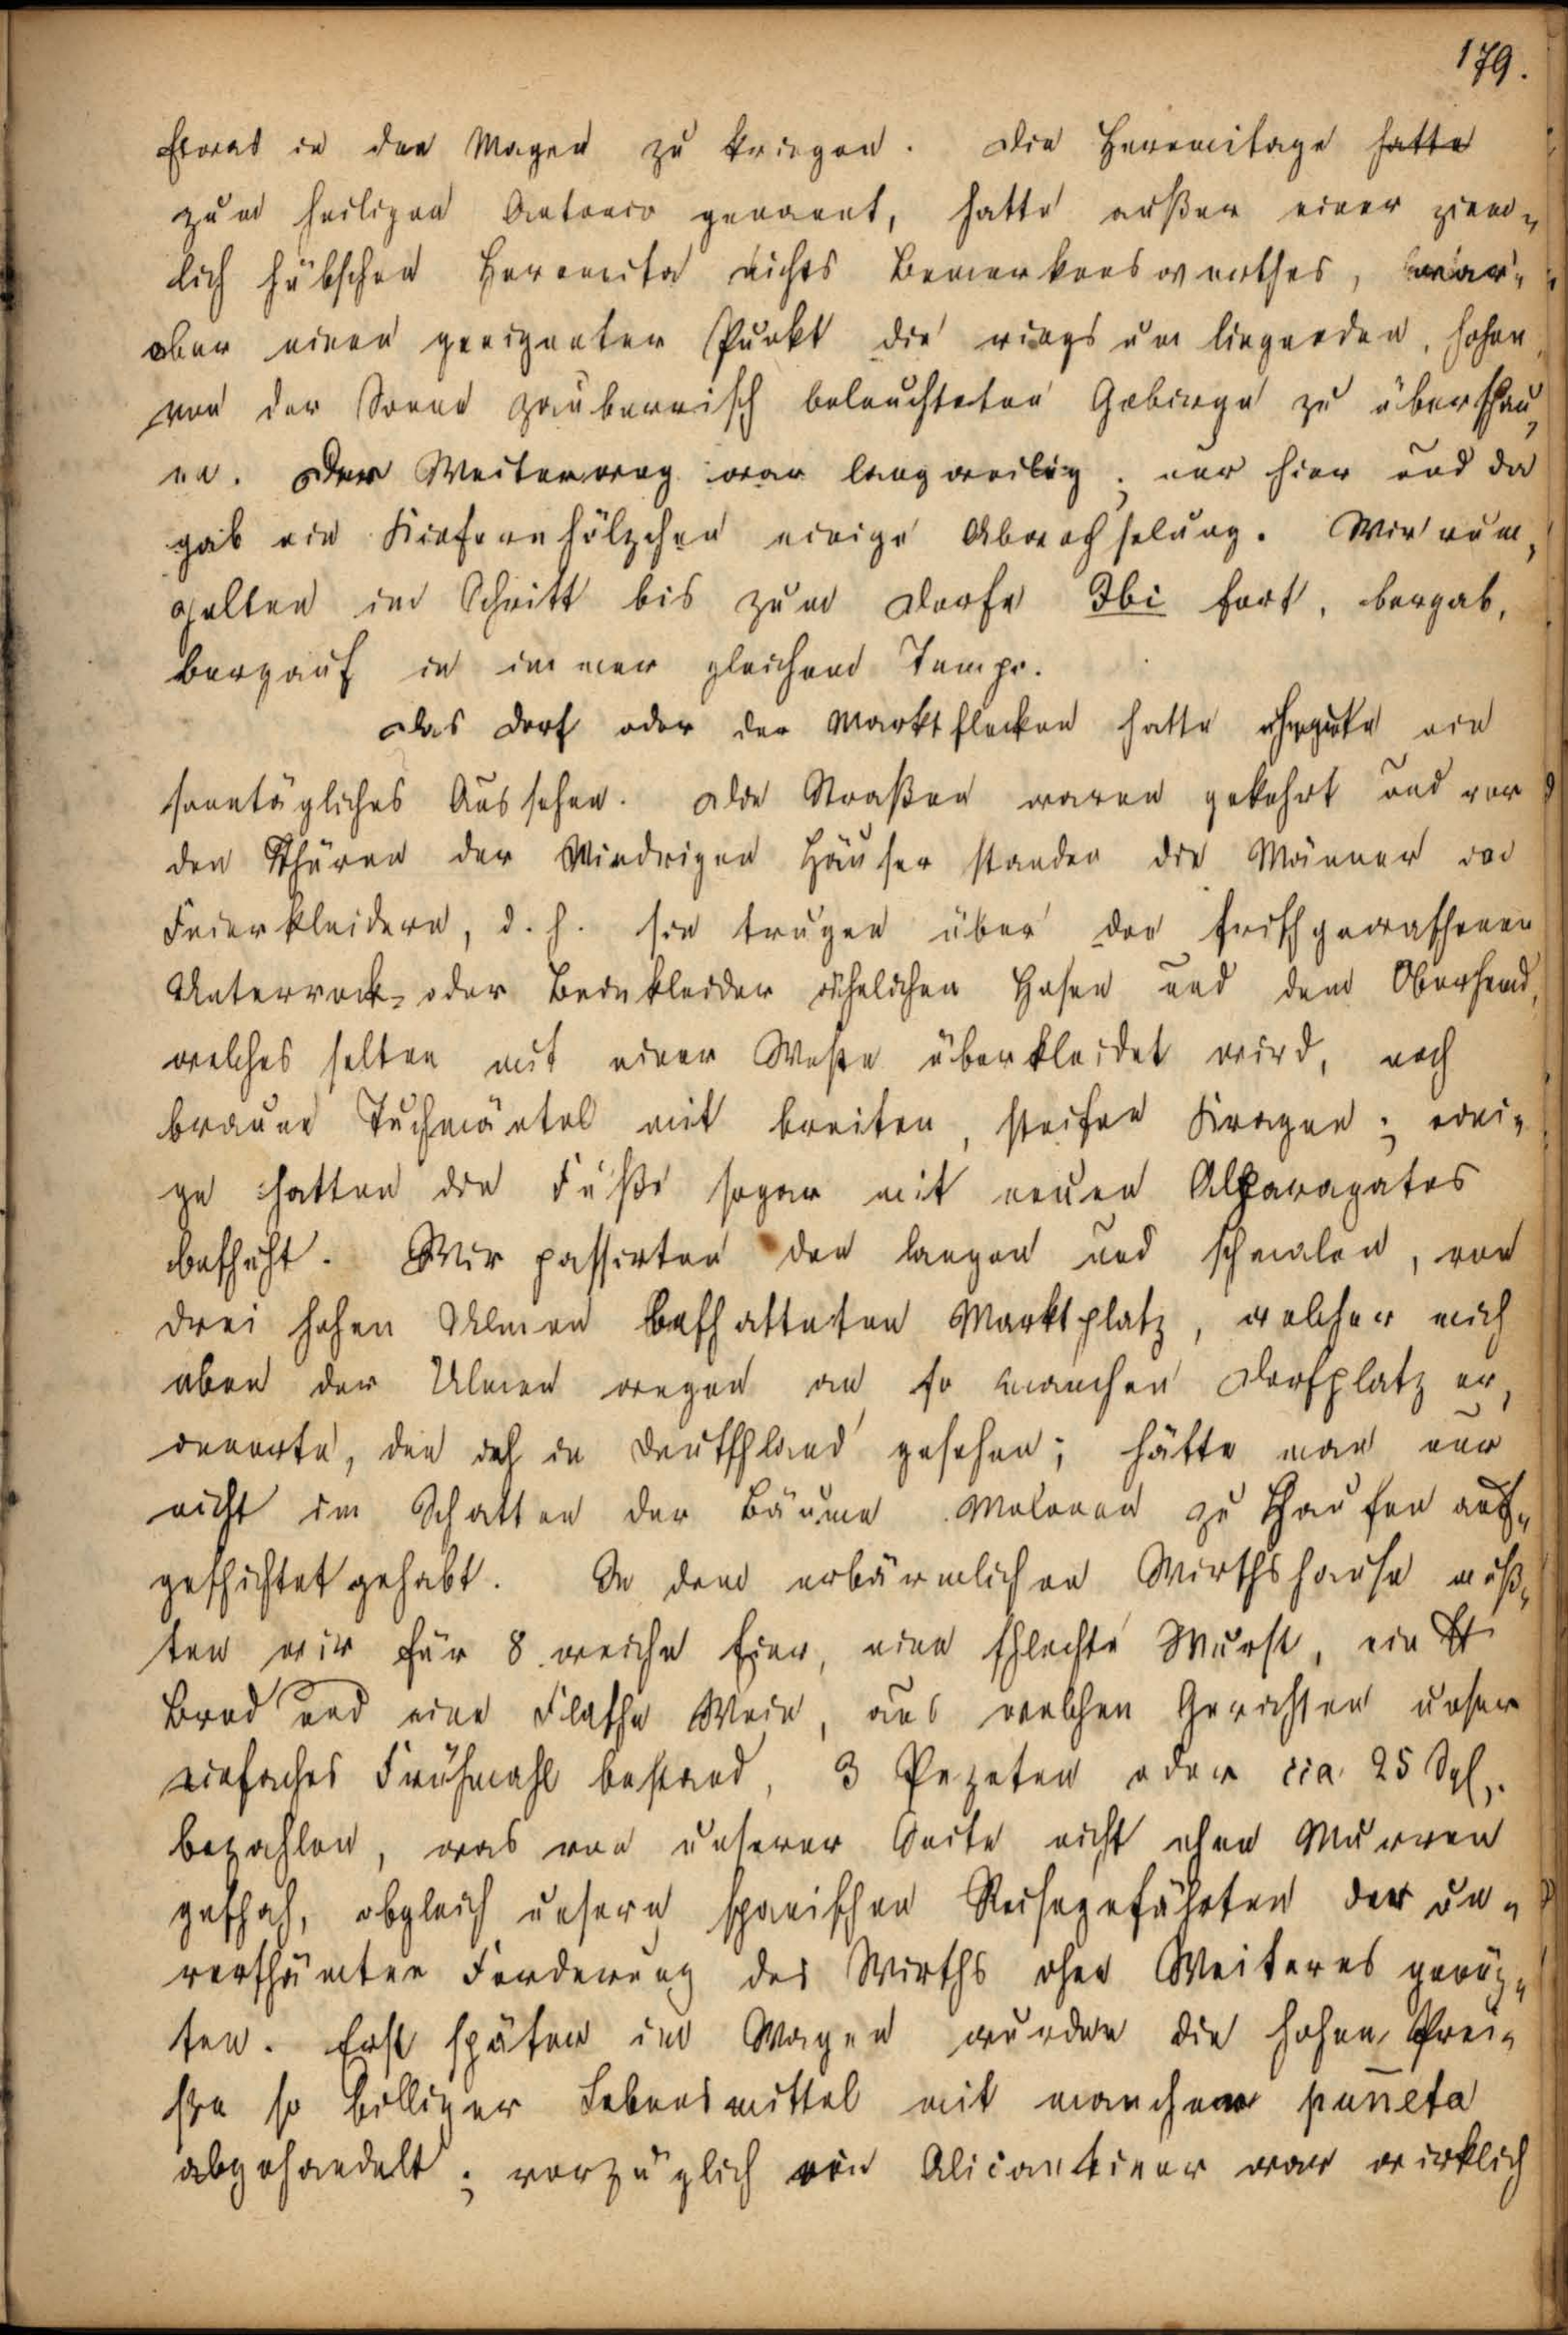 179.
Etwas in den Magen zu kriegen. Die Heremitage hatte
zum heiligen Antonio genannt, hatte außer einer ziem-
lich hübschen Heremita nichts Bemerkenswerthes, war
aber einen geeigneter Punkt die rings um liegenden, hohen
von der Sonne zauberisch beleuchteten Gebirge zu überschau-
en. Der Weiterweg war langweilig; nur hier und da
gab ein Kiefernhölzchen einige Abwechselung. Wir rum-
pelten im Schritt bis zum Dorfe Ibi fort, bergab,
bergauf in immer gleichem Tempo.
Das Dorf oder der Marktflecken hatte ein
sonntägliches Aussehen. Die Straßen waren gekehrt und vor
den Thüren der Niedrigen Häuser standen die Männer in
Feierkleidern, d. h. sie trugen über den frischgewaschenen
Unterrock- oder Beinkleider ähnlichen Hosen und dem Oberhemd,
welches selten mit einer Weste überkleidet wird, noch
braune Tuchmäntel mit breiten, steifen Kragen; eini-
ge hatten die Füße sogar mit neuen Alparagates
beschuht. Wir passirten den langen und schmalen, von
drei hohen Ulmen beschatteten Marktplatz, welcher mich
eben der Ulmen wegen an so manchen Dorfplatz er-
innerte, den ich in Deutschland gesehen; hätte man nur
nicht im Schatten der Bäume Melonen zu Haufen auf-
geschichtet gehabt. In dem erbärmlichen Wirthshause muß-
ten wir für 8 weiche Eier, eine schlechte Wurst, ein St
Brod und eine Flasche Wein, aus welchen Gerichten unser
einfaches Frühmahl bestand, 3 Pezeten oder cia 25 Sgl.
bezahlen, was von unserer Seite nicht ohne Murren
geschah, obgleich unsere spanischen Reisegefährten der un-
verschämten Forderung des Wirths ohne Weiteres genüg-
ten. Erst später im Wagen wurden die hohen Prei-
se so billiger Lebensmittel mit manchem puñeta
abgehandelt; vorzüglich ein Alicantiner war wirklich